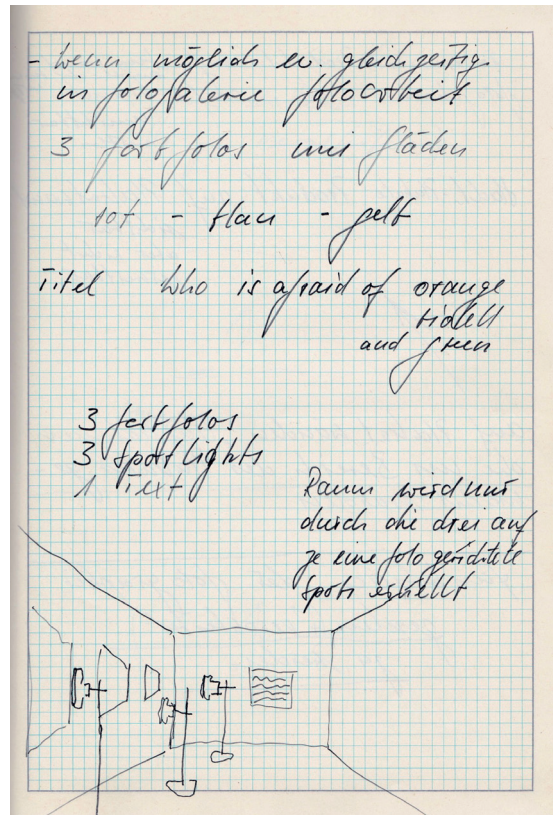 - wenn möglich ev. gleichzeitig
in fotogalerie fotoarbeit
3 farbfotos mit flächen
rot - blau - gelb
Titel who is afraid of orange
violett
and green
3 farbfotos
3 Sportlights
1 Text
Raum wird nur
durch die drei auf
je eine foto gerichtete
Spots erhellt